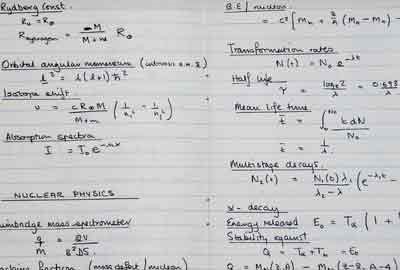 Rydberg Const.
R₀ = R∞
R hydrogen = M / M + m R∞
Orbital angular momentum
l² = l(l+1) ħ²
Isotope shift.
ν = cR∞M / M+m (1/n₁² - 1/n₂²)
Absorption spectra
I = I₀e
NUCLEAR PHYSICS
Bainbridge mass spectrometer
q/M = 2V / B²
fraction (mass defect / nucleon)
B.E / nucleon
= c² [Mₙ + Z/A (Mₕ - Mₙ) -
Transformation rates
N(t) = N₀ e^-λt
Half life
τ = logₑ2 / λ = 0.693 / λ
Mean life time
t̄ = ∫₀^N₀ t dN / N₀
t̄ = 1/λ
Multistage decays.
N₂(t) = N₁(0) λ₁ / λ₂ - λ₁ (e^-λ₁t -
α - decay
Energy released E₀ = Tα (1 +
Stability against
Q = Tα + Tₕ = E₀
Q = Mₙ(Z,A) - Mₙ(Z-2, A-4)